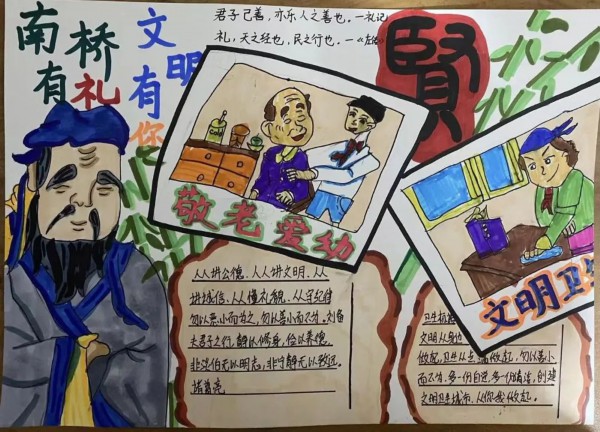 南桥
有礼
文明
有你
君子己善，亦乐人之善也。—礼记
礼，天之经也，民之行也。—《左传》
賢
敬老爱幼
文明卫生
人人讲公德、人人讲文明、从
讲诚信、从懂礼貌、从守纪律
勿以恶小而为之，勿以善小而不为.刘备
夫君子之行，静以修身，俭以养德，
非淡泊无以明志，非宁静无以致远。
诸葛亮
卫生
文明从身
做起，卫生从点滴做起，勿以善小
而不为，多一份自觉，多一份清洁，创建
文明卫生城市，从你我做起。